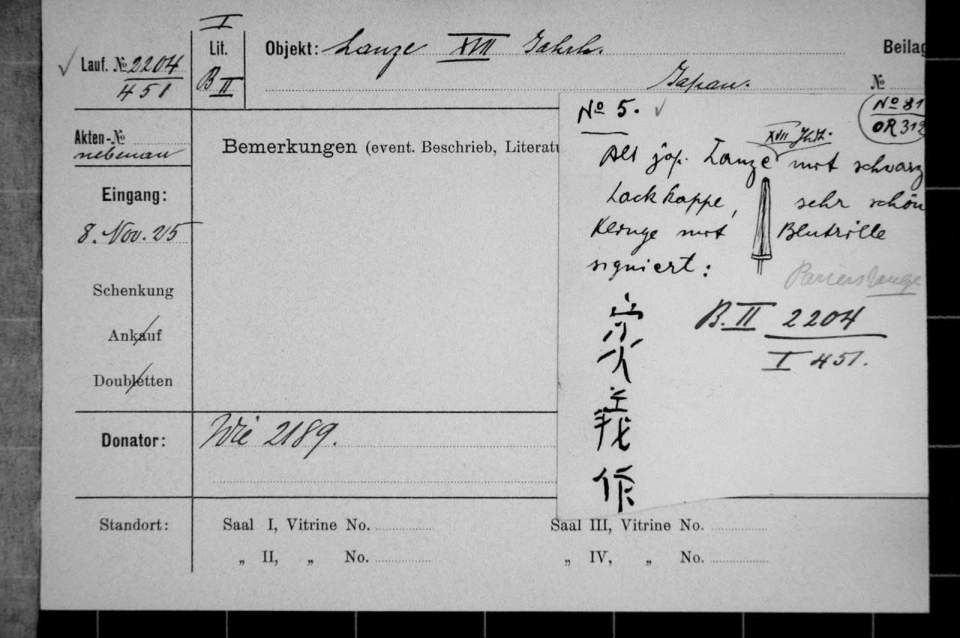 I
Lauf. № 2204
451
Lit.
B II
Objekt: Lanze XVII Jahrh.
Japan.
Beilag
№
Akten-№
nebenan
Bemerkungen (event. Beschrieb, Literatu
Eingang:
8. Nov. 25
Schenkung
Ankauf
Doubletten
Donator: Wie 2189.
Standort:
Saal I, Vitrine No.
Saal III, Vitrine No.
„ II, „ No.
„ IV, „ No.
No 5. ✓
No 81
OR 312
XVII Jhdt.
Alt jap. Lanze mit schwarz
Lackkappe, sehr schön
Klinge mit Blutrille
signiert:
Parierstange
B. II 2204
I 451.
宗
次
義
作